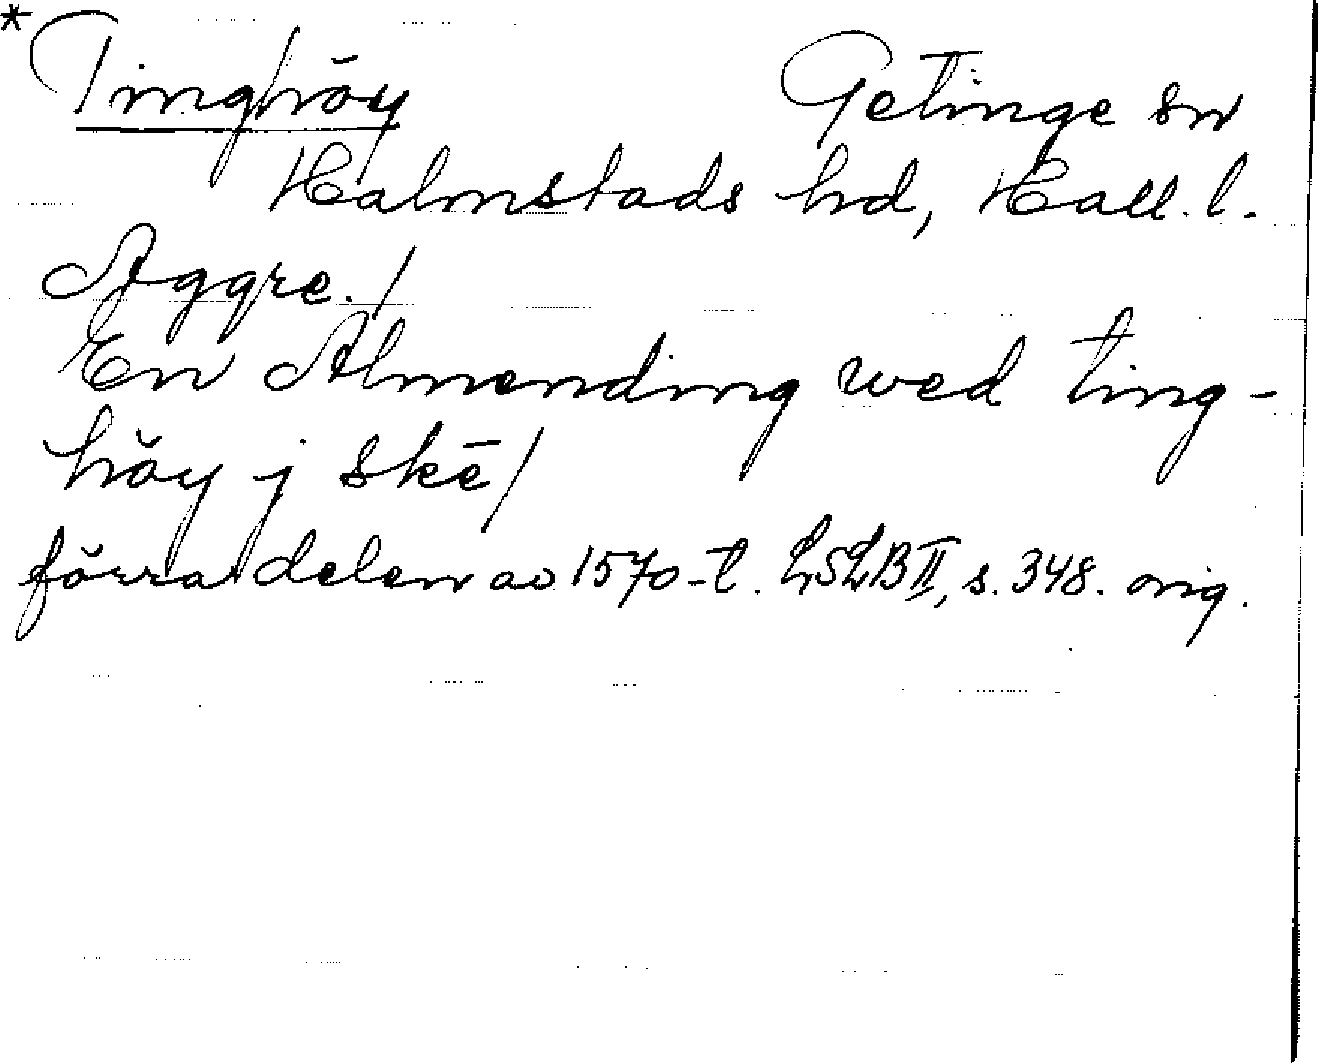 *Tinghöy Getinge sn
Halmstads hd, Hall. l.
Aggre./
En Almending wed ting-
höy j skē/
förra delen av 1570-t. LSLB II, s. 348. orig.